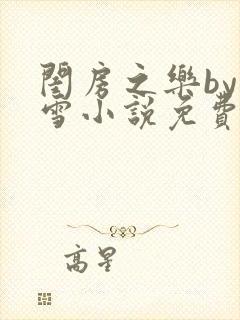 閨房之樂by
雪小說免費
高星